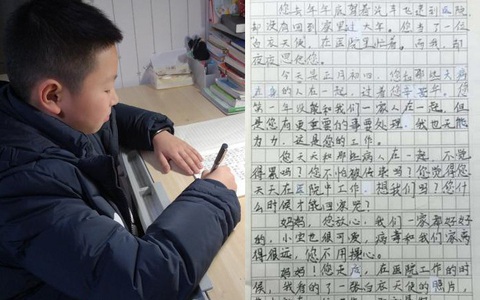 都没有回到家里过大年。您为了一位
白衣天使，在医院里忙着。而我，却
夜夜思念您。
今天是正月初一，您和那些天病
的人在一起，过着
第一年没能和我们一家人在一起。但
是您有更重要的事要处理。我也无能
为力，这是您的工作。
您天天和那些病人在一起，不觉
得累吗？您不怕被传染吗？您觉得您
天天在医院中工作，想我们吗？您什
么时候才能回家完？
妈妈，您放心，我们一家都好好
的，小宝也很可爱，病毒和我们家离
得很远，您不用操心。
妈妈！您走后，在医院工作的时
候，我看的了一张白衣天使的照片，